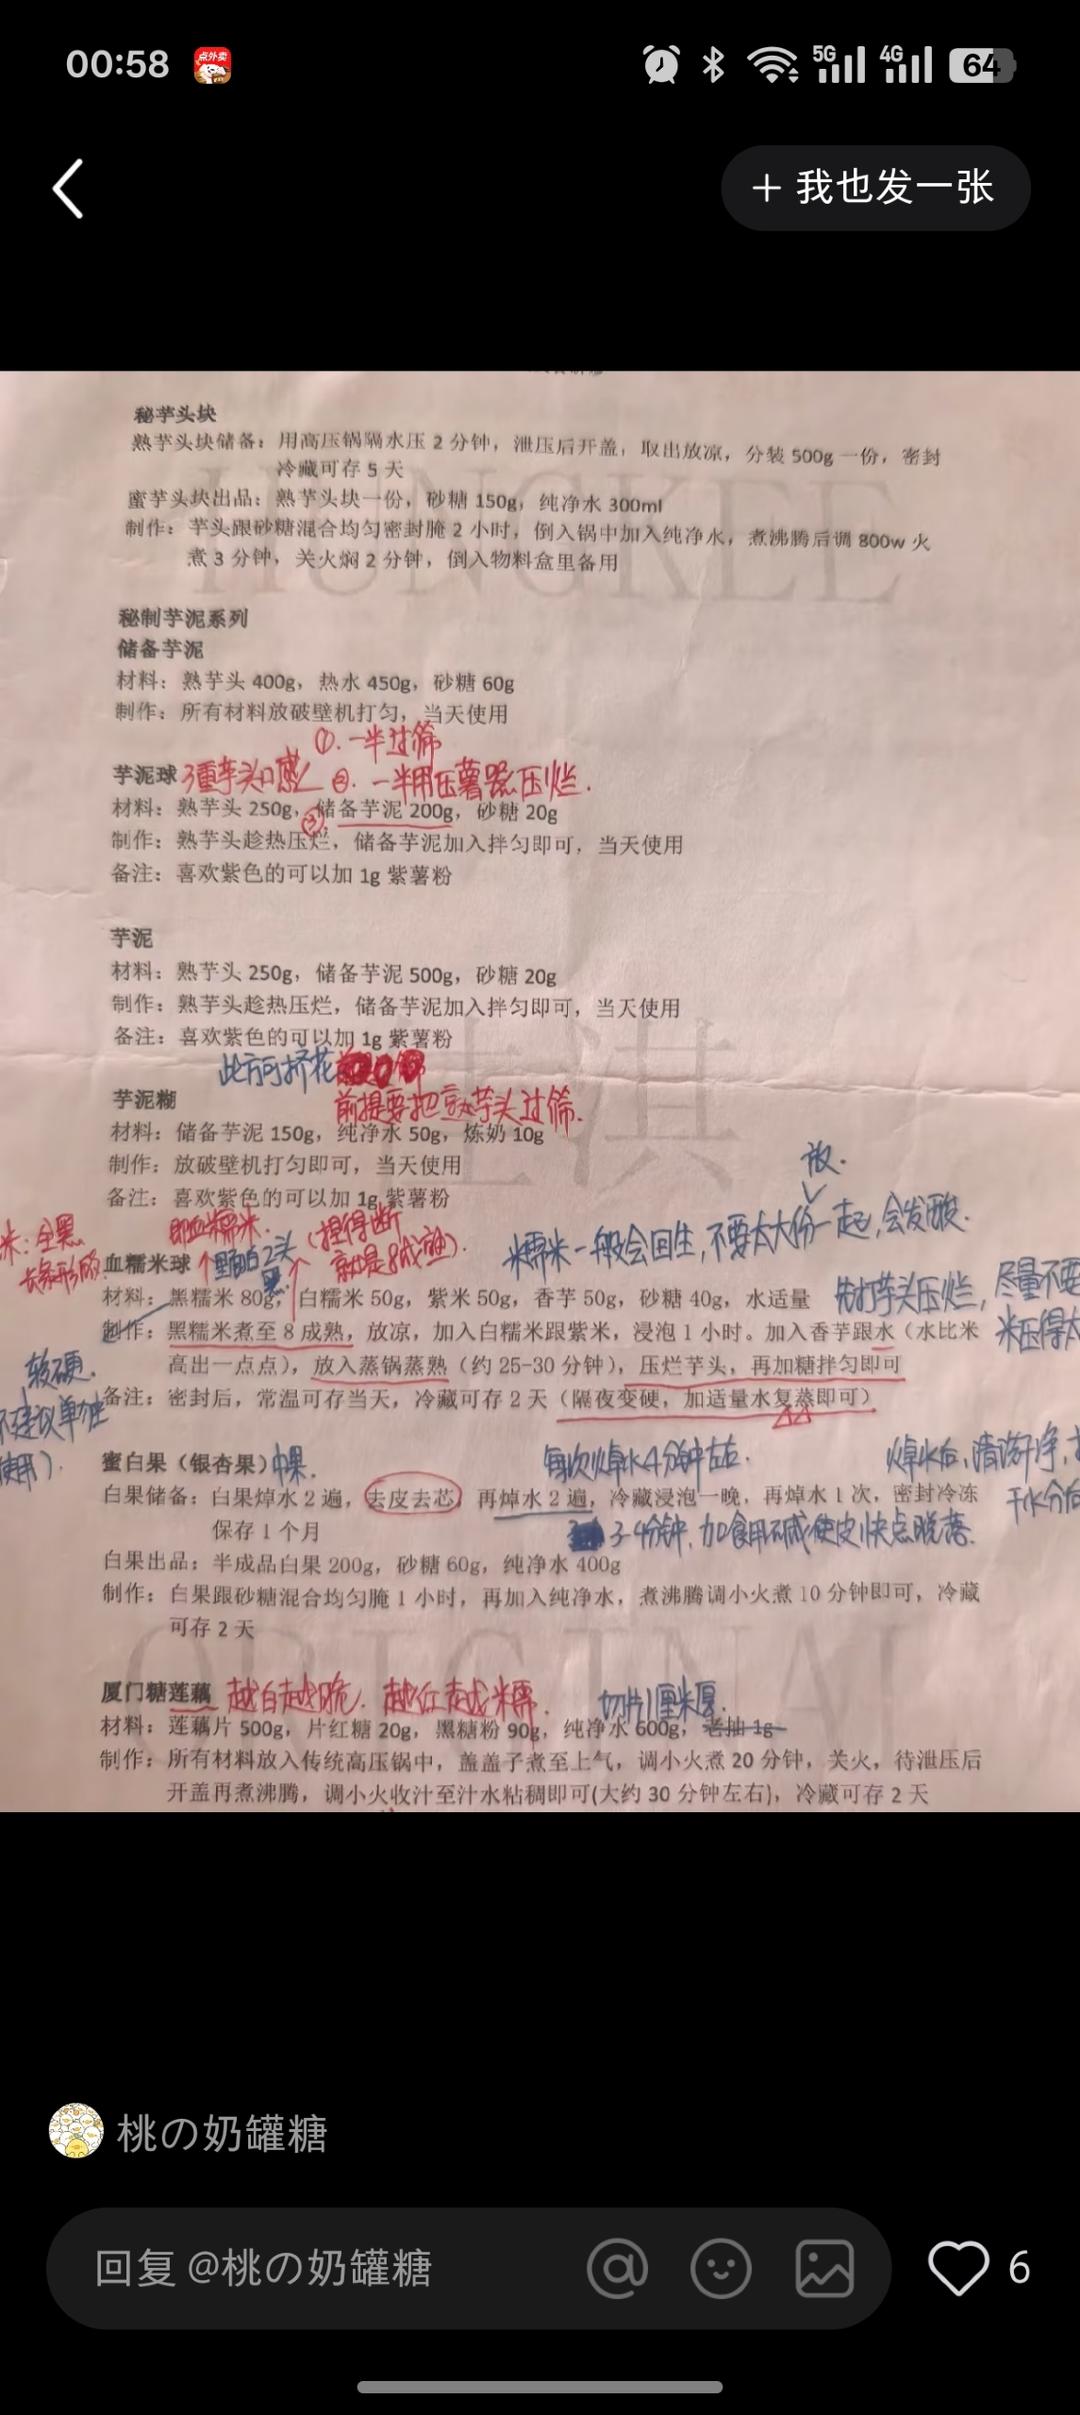 00:58
点外卖
5G
4G
64
+ 我也发一张
秘芋头块
熟芋头块储备：用高压锅隔水压 2 分钟，泄压后开盖，取出放凉，分装 500g 一份，密封
冷藏可存 5 天
蜜芋头块出品：熟芋头块一份，砂糖 150g，纯净水 300ml
制作：芋头跟砂糖混合均匀密封腌 2 小时，倒入锅中加入纯净水，煮沸腾后调 800w 火
煮 3 分钟，关火焖 2 分钟，倒入物料盒里备用
HUNGKEE
秘制芋泥系列
储备芋泥
材料：熟芋头 400g，热水 450g，砂糖 60g
制作：所有材料放破壁机打匀，当天使用
①. 一半过筛
芋泥球 3重芋头口感 ②. 一半用压薯器压烂.
材料：熟芋头 250g，储备芋泥 200g，砂糖 20g
③
制作：熟芋头趁热压烂，储备芋泥加入拌匀即可，当天使用
备注：喜欢紫色的可以加 1g 紫薯粉
芋泥
材料：熟芋头 250g，储备芋泥 500g，砂糖 20g
制作：熟芋头趁热压烂，储备芋泥加入拌匀即可，当天使用
备注：喜欢紫色的可以加 1g 紫薯粉
此方可挤花
芋泥糊 前提要把熟芋头过筛.
材料：储备芋泥 150g，纯净水 50g，炼奶 10g
制作：放破壁机打匀即可，当天使用
放.
备注：喜欢紫色的可以加 1g 紫薯粉
米：全黑
长条形的
即血糯米.
(捏得断
就是8成熟).
糯米一般会回生，不要太大份一起，会发酸.
血糯米球
材料：黑糯米 80g，白糯米 50g，紫米 50g，香芋 50g，砂糖 40g，水适量
先打芋头压烂，尽量不要
米压得太
制作：黑糯米煮至 8 成熟，放凉，加入白糯米跟紫米，浸泡 1 小时。加入香芋跟水（水比米
高出一点点），放入蒸锅蒸熟（约 25-30 分钟），压烂芋头，再加糖拌匀即可
较硬.
不建议单独
使用).
备注：密封后，常温可存当天，冷藏可存 2 天（隔夜变硬，加适量水复蒸即可）
蜜白果（银杏果）中果.
每次焯水4分钟左右.
焯水后，清洗干净，
干水分后
白果储备：白果焯水 2 遍，去皮去芯，再焯水 2 遍，冷藏浸泡一晚，再焯水 1 次，密封冷冻
保存 1 个月
3-4分钟，加食用碱，使皮快点脱落.
白果出品：半成品白果 200g，砂糖 60g，纯净水 400g
制作：白果跟砂糖混合均匀腌 1 小时，再加入纯净水，煮沸腾调小火煮 10 分钟即可，冷藏
可存 2 天
ORIGINAL
厦门糖莲藕 越白越脆. 越红越糯. 切片1厘米厚.
材料：莲藕片 500g，片红糖 20g，黑糖粉 90g，纯净水 600g，老抽 1g
制作：所有材料放入传统高压锅中，盖盖子煮至上气，调小火煮 20 分钟，关火，待泄压后
开盖再煮沸腾，调小火收汁至汁水粘稠即可(大约 30 分钟左右)，冷藏可存 2 天
桃の奶罐糖
回复 @桃の奶罐糖
6